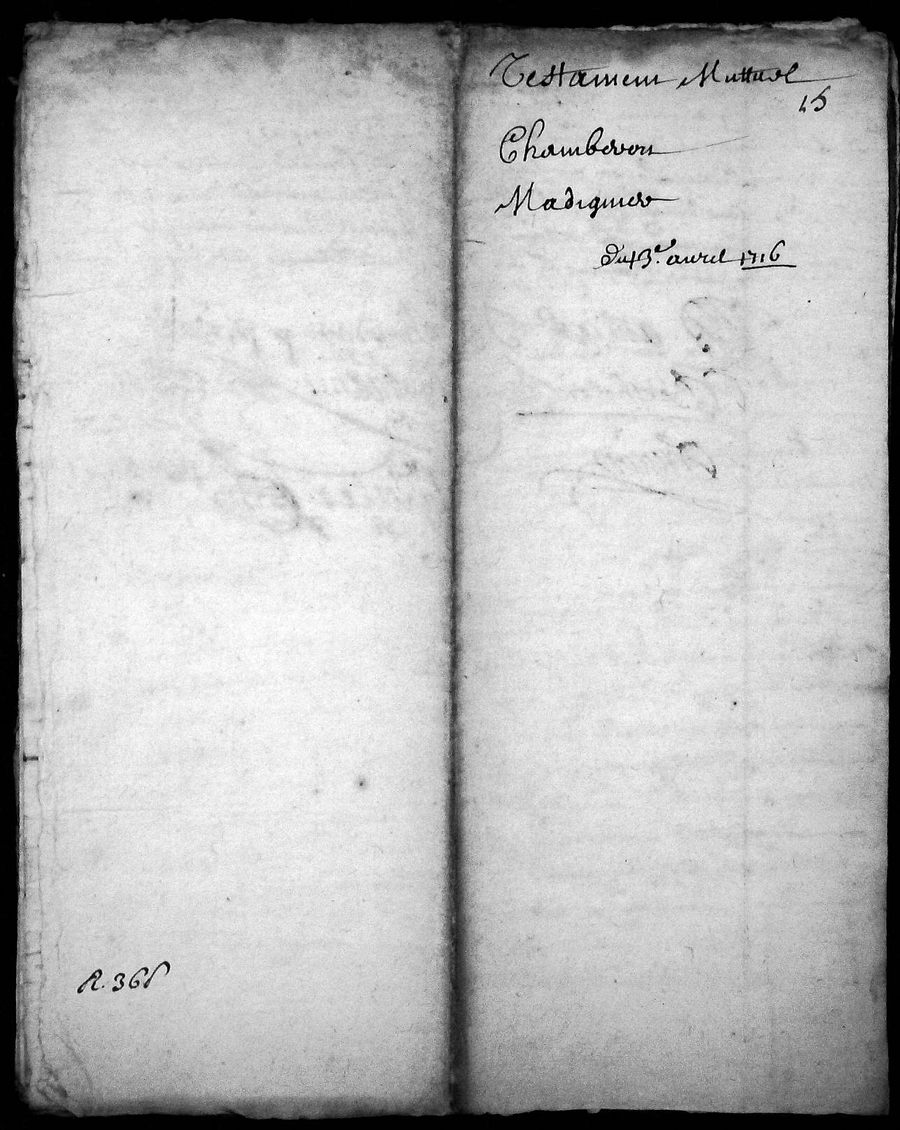 Testament Mutuel
15
Chambovon
Madignier
Du 13.e avril 1716
R. 366